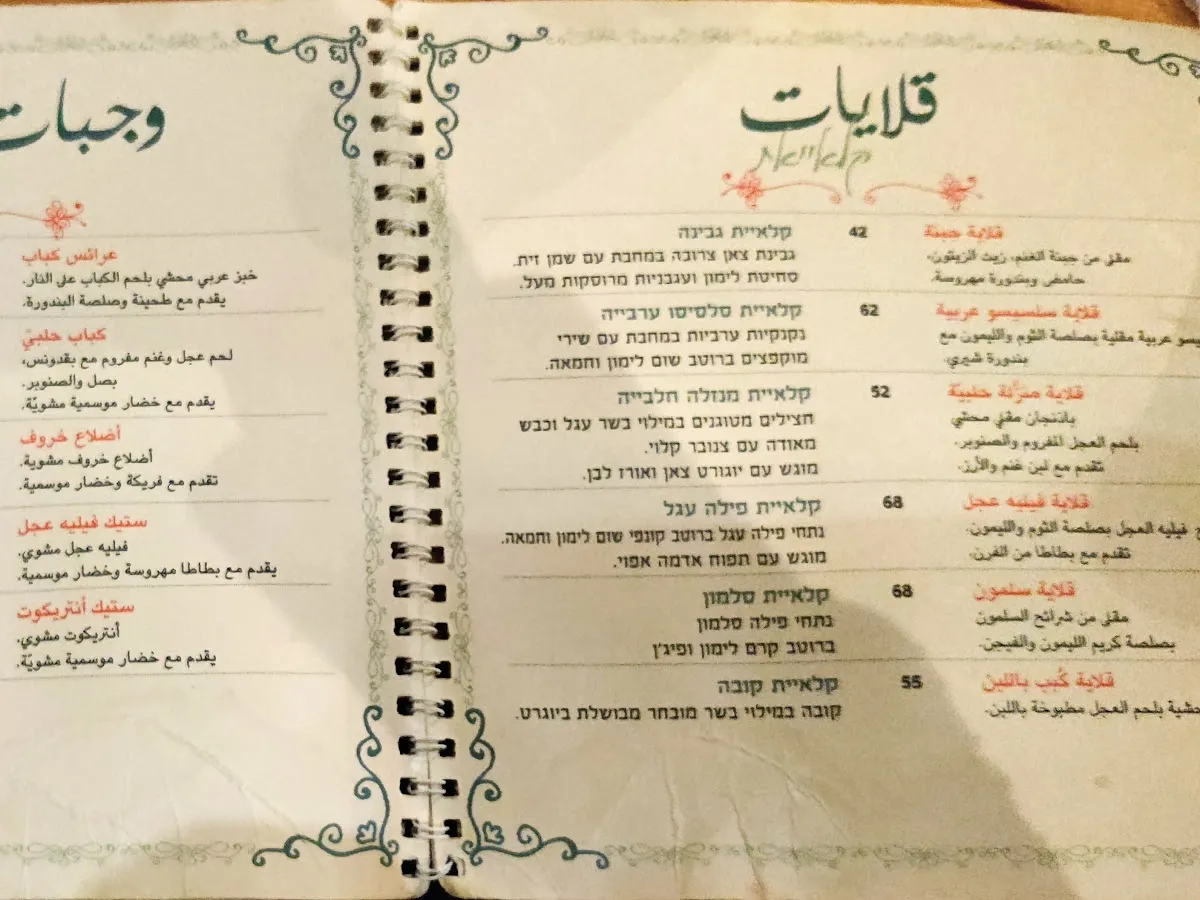 قلايات
קלאייאת
قلاية جبنة
42
קלאיית גבינה
مقلى من جبنة الغنم، زيت الزيتون،
حامض وبندورة مهروسة.
גבינת צאן צרובה במחבת עם שמן זית.
סחיטת לימון ועגבניות מרוסקות מעל.
قلاية سلسيسو عربية
62
קלאיית סלסיסו ערבייה
عربية مقلية بصلصة الثوم والليمون مع
بندورة شيري.
נקנקיות ערביות במחבת עם שירי
מוקפצים ברוטב שום לימון וחמאה.
قلاية منزلة حلبيّة
52
קלאיית מנזלה חלבייה
باذنجان مقلي محشي
بلحم العجل المفروم والصنوبر.
تقدم مع لبن غنم والأرز.
חצילים מטוגנים במילוי בשר עגל וכבש
מאודה עם צנובר קלוי.
מוגש עם יוגורט צאן ואורז לבן.
قلاية فيليه عجل
68
קלאיית פילה עגל
فيليه العجل بصلصة الثوم والليمون.
تقدم مع بطاطا من الفرن.
נתחי פילה עגל ברוטב קונפי שום לימון וחמאה.
מוגש עם תפוח אדמה אפוי.
قلاية سلمون
68
קלאיית סלמון
مقلى من شرائح السلمون
بصلصة كريم الليمون والفيجن.
נתחי פילה סלמון
ברוטב קרם לימון ופיג'ן
قلاية كُبب باللبن
55
קלאיית קובה
بلحم العجل مطبوخة باللبن.
קובה במילוי בשר מובחר מבושלת ביוגרט.
وجبات
عرائس كباب
خبز عربي محشي بلحم الكباب على النار.
يقدم مع طحينة وصلصة البندورة.
كباب حلبيّ
لحم عجل وغنم مفروم مع بقدونس،
بصل والصنوبر.
يقدم مع خضار موسمية مشويّة.
أضلاع خروف
أضلاع خروف مشوية.
تقدم مع فريكة وخضار موسمية.
ستيك فيليه عجل
فيليه عجل مشوي.
يقدم مع بطاطا مهروسة وخضار موسمية.
ستيك أنتريكوت
أنتريكوت مشوي.
يقدم مع خضار موسمية مشويّة.